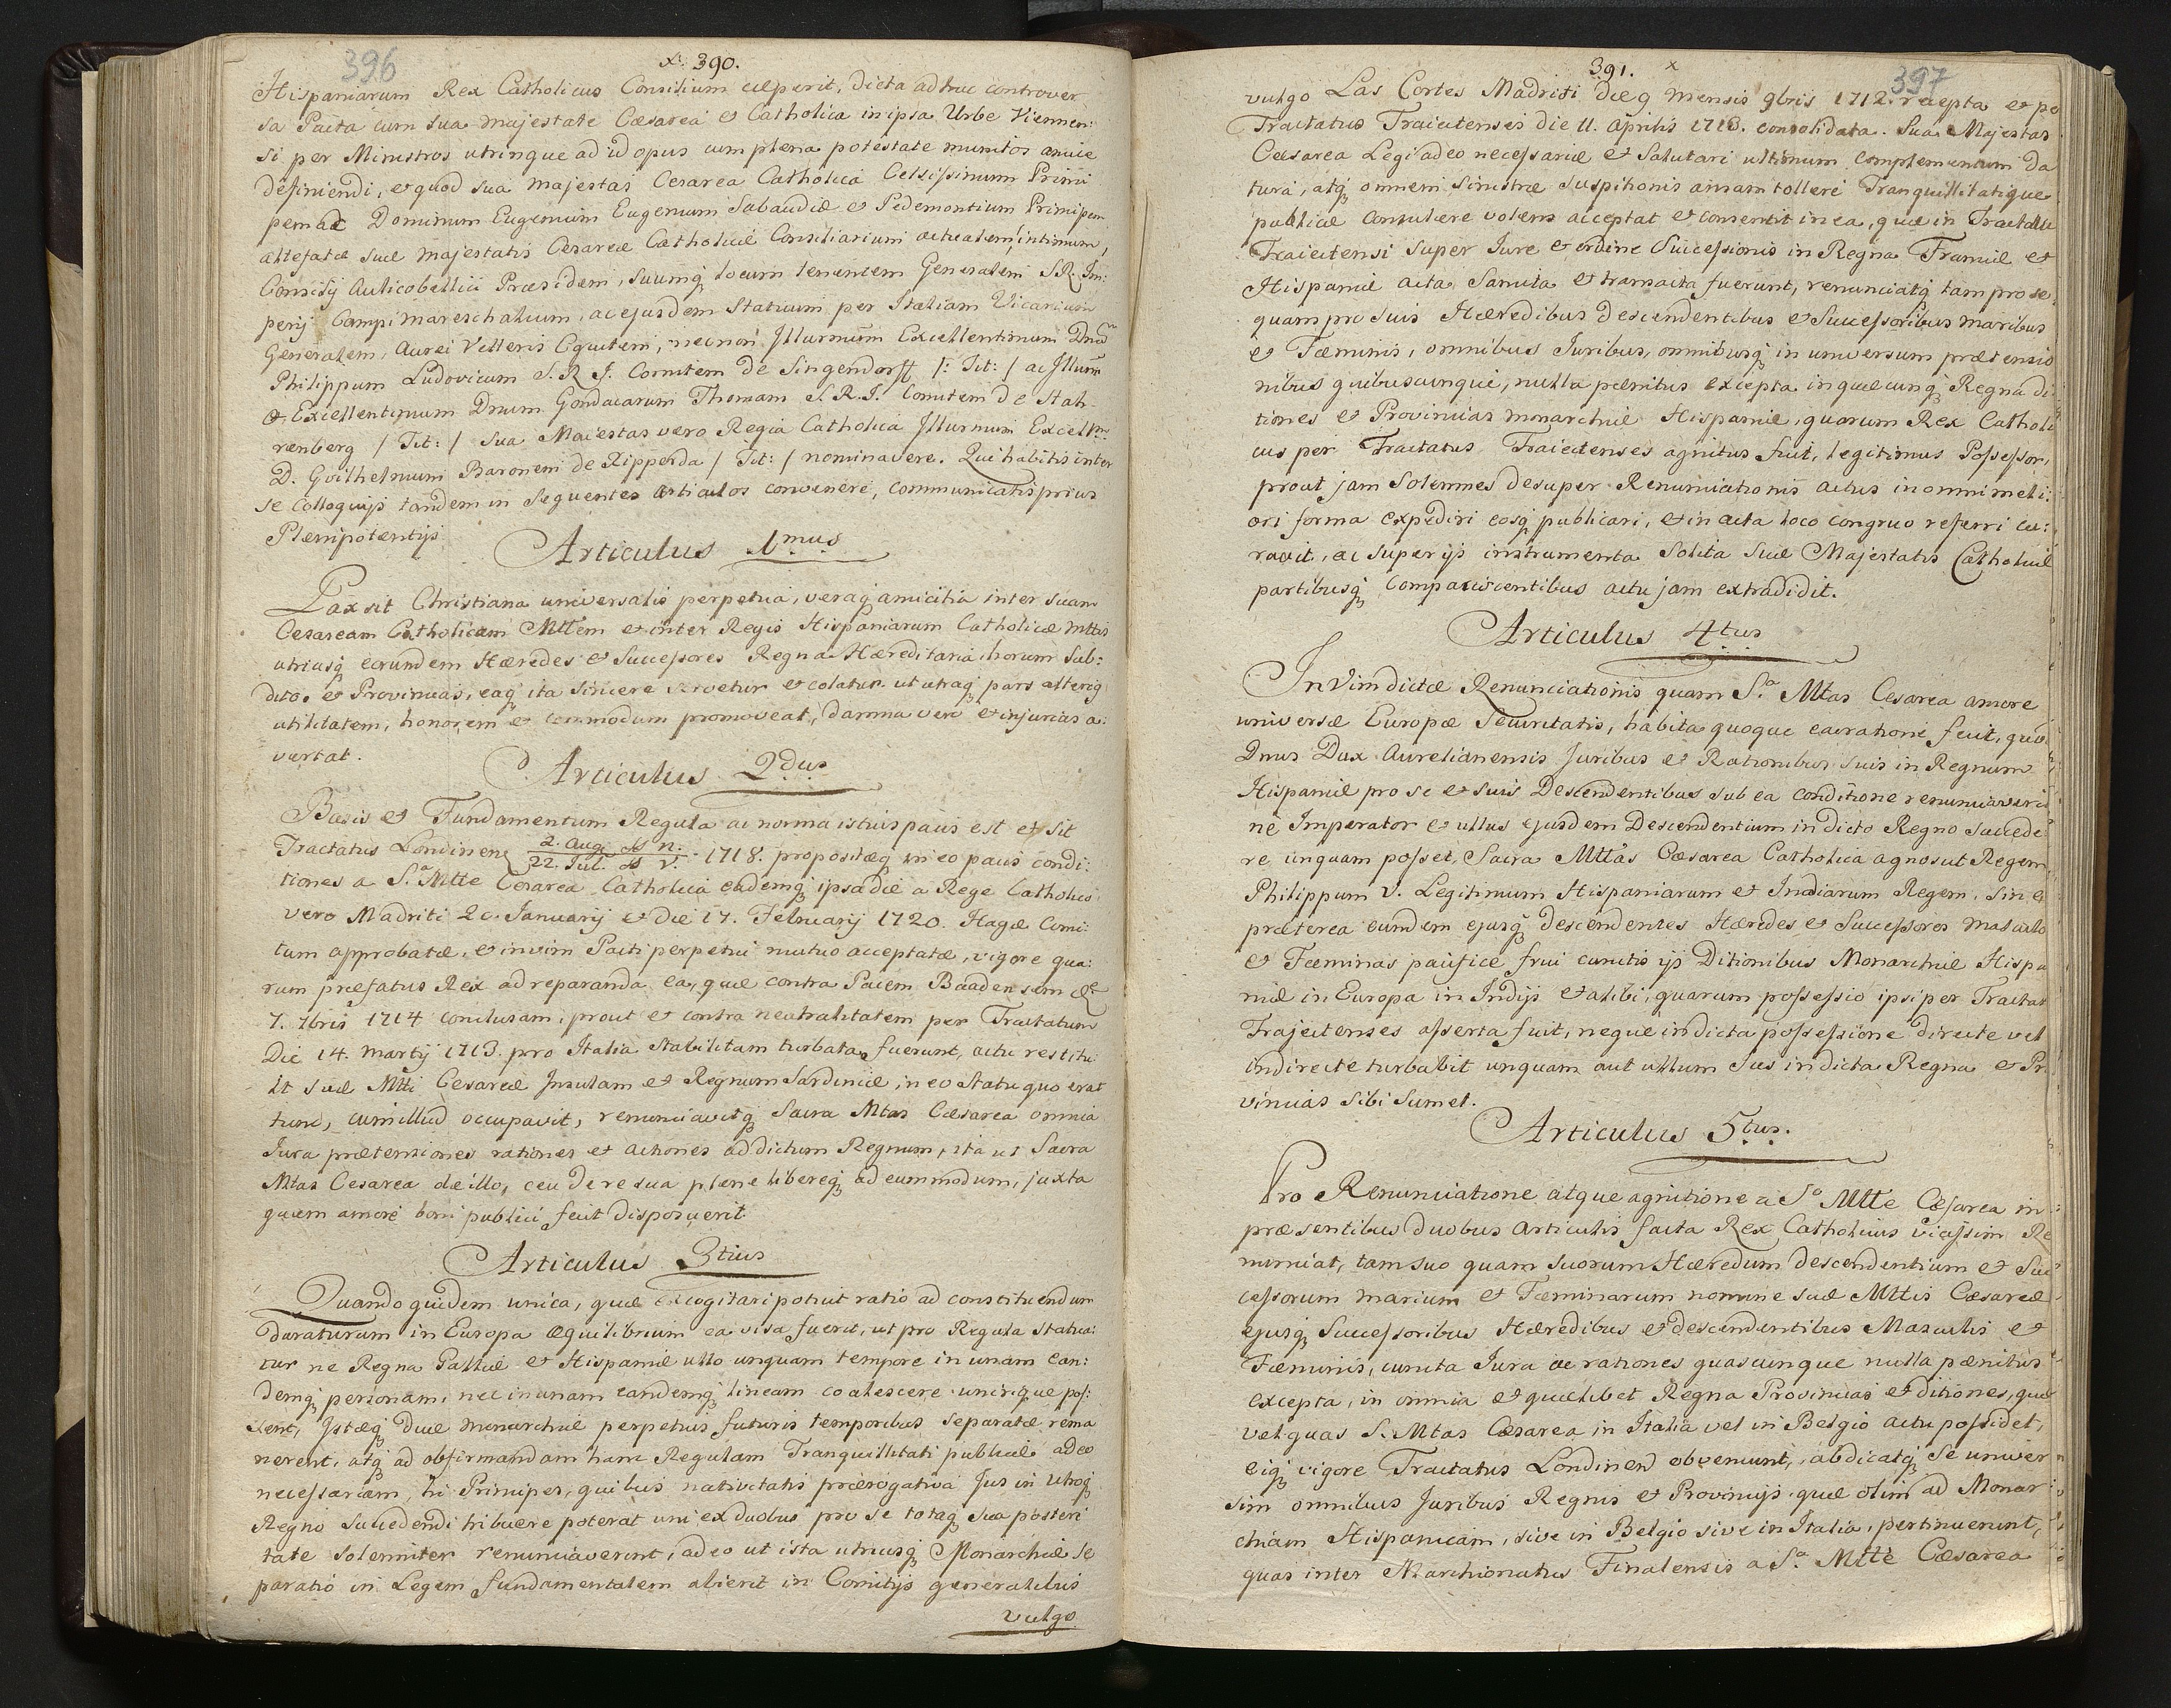 396
x. 390.
Hispaniarum Rex Catholicus Consilium cæperit, dicta adhuc controver
sa Pacta cum sua Majestate Cæsarea & Catholica in ipsa Urbe Viennen:
si per Ministros utrinque ad id opus cum plena potestate munitos amice
definiendi, & quod sua Majestas Cesarea Catholica Celsissimum Princi
pem ac Dominum Eugenium Eugenium Sabaudiæ & Pedemontium Principem
altefatæ suæ Majestatis Cesareæ Catholicæ Consiliarium actualem intimum,
Consilij Aulicobellici Præsidem, suumq locum tenentem Generalem S.R. Im:
perij Campi mareschalcum, ac ejusdem Statuum per Italiam Vicarium
Generalem, Aurei Velleris Equitem, necnon Illurmum Excellentimum Dnum
Philippum Ludovicum S. R. J. Comitem de Singendorff /: Tit: / ac Jllum
& Excellentimum Dnum Gondacarum Thomam S. R. J. Comitem de Stah
renberg / Tit: / sua Maiestas vero Regia Catholica Jllurmum Excellm
D. Guilhelmum Baronem de Ripperda / Tit: / nominavere. Qui habitis inter
se colloquijs tandem in sequentes Articulos convenere, communicatis prius
Plenipotentijs
Articulus 1mus
Pax sit Christiana universalis perpetua, veraq amicitia inter suam
Cesaream Catholicam Mttem & inter Regis Hispaniarum Catholicæ Mttis
utriusq eorundem Hæredes & Successores Regna Hæreditaria horum Sub:
ditos & Provincias, eaq ita sincere servetur & colatur ut utraq pars alteriq
utilitatem, honorem & commodum promoveat, damna vero & injurias a:
vertat.
Articulus 2dus
Basis & Fundamentum Regula ac norma istius pacis est & sit
Tractatus Londinens 2. Aug. st n. / 22. Jul. st v. 1718. propositæq in eo pacis condi:
tiones a S.a Mtte Cesarea Catholica eademq ipsa die a Rege Catholico
vero Madriti 26. Januarij & die 17. Februarij 1720. Hagæ Comi:
tum approbatæ, & in vim Pacti perpetui mutuo acceptatæ, vigore qua:
rum præfatus Rex ad reparanda ea, quæ contra Pacem Baadensem de
7. 7bris 1714 conclusam, prout & contra neutralitatem per Tractatum
Die 14. Martij 1713. pro Italia stabilitam turbata fuerunt, actu restitu:
it suæ Mtti Cesareæ Insulam & Regnum Sardiniæ, in eo Statu quo erat
tunc, cum illud occupavit, renunciavitq Sacra Mtas Cæsarea omnia
Jura prætensiones rationes et actiones ad dictum Regnum, ita ut Sacra
Mtas Cesarea de illo, ceu de re sua plene libereq ad eum modum, juxta
quem amore boni publici fecit disposuerit
Articulus 3tius
Quandoquidem unica, quæ excogitari potuit ratio ad constituendum
duraturum in Europa æquilibrium ea visa fuerit, ut pro Regula statua:
tur ne Regna Galliæ & Hispaniæ ullo unquam tempore in unam ean:
demq personam, nec in unam eandemq lineam coalescere unirique pos:
sent, Istæq duæ monarchiæ perpetuis futuris temporibus separatæ rema
nerent, atq ad obfirmandam hanc Regulam Tranquillitati publicæ adeo
necessariam, hi Principes, quibus nativitatis prærogativa Jus in utroq
Regno succedendi tribuere poterat uni ex duobus pro se totaq sua posteri
tate solemniter renunciaverint, adeo ut ista utriusq Monarchiæ se
paratio in Legem fundamentalem abierit in Comitijs generalibus
vulgo
391. x
397
vulgo Las Cortes Madriti die 9 mensis 9bris 1712. recepta & pe
Tractatus Traiectenses die 11. Aprilis 1713. consolidata. Sua Majestas
Cæsarea Legi adeo necessariæ & Salutari ultimum complementum da
tura, atq omnem sinistræ suspitionis ansam tollere Tranquillitatique
publicæ consulere volens acceptat & consentit in ea, quæ in Tractatu
Traiectensi super Jure & ordine Successionis in Regna Franciæ &
Hispaniæ acta, Sancita & transacta fuerunt, renunciatq tam pro se,
quam pro suis Hæredibus Descendentibus & Successoribus maribus
& Fæminis, omnibus Juribus, omnibusq in universum prætensio
nibus quibuscunque, nulla pænitus excepta in quæcunq Regna di
tiones & Provincias monarchiæ Hispaniæ, quorum Rex Catholi
cus per Tractatus Traiectenses agnitus fuit, legitimus Possessor,
prout jam Solennes desuper Renunciationis actus in omni meli:
ori forma expediri eosq publicari, & in acta loco congruo referri cu:
ravit, ac super ijs instrumenta Solita Suæ Majestatis Catholicæ
partibusq compasciscentibus actu jam extradidit.
Articulus 4tus
In Vim dictæ Renunciationis quam S.a Mtas Cesarea amore
universæ Europæ Securitatis, habita quoque ea ratione fecit, quo
Dnus Dux Aurelianensis Juribus & Rationibus suis in Regnum
Hispaniæ pro se & suis Descendentibus sub ea conditione renunciaverit
ne Imperator & ullus ejusdem Descendentium in dicto Regno succede
re unquam posset, Sacra Mttas Cæsarea Catholica agnoscit Regem
Philippum V. Legitimum Hispaniarum et Indiarum Regem, sin e
præterea eumdem ejusq descendentes Hæredes & Successores masculo
& Fæminas pacifice frui cunctis ijs Ditionibus Monarchiæ Hispa
niæ in Europa in Indijs & alibi, quarum possessio ipsi per Tractat
Trajectenses asserta fuit, neque in dicta possessione directe vel
indirecte turbabit unquam aut ullum Jus in dicta Regna & Pr
vincias sibi sumet.
Articulus 5tus.
Pro Renunciatione atque agnitione a S.a Mtte Cæsarea in
præsentibus duobus articulis facta Rex Catholicus vicissim Re
nunciat, tam suo quam suorum Hæredum descendentium & Suc
cessorum marium & Fæminarum nomine suæ Mttis Cæsareæ
ejusq Successoribus Hæredibus & descendentibus Masculis &
Fæminis, cuncta Jura ac rationes quascunque nulla pænitus
excepta, in omnia & quælibet Regna Provincias & ditiones, quæ
vel quas S. Mtas Cæsarea in Italia vel in Belgio actu possidet,
eiq vigore Tractatus Londinens obveniunt, abdicatq se univer
sim omnibus Juribus Regnis & Provincijs quæ olim ad Monar
chiam Hispanicam, sive in Belgio sive in Italia, pertinuerunt,
quas inter Marchionatus Finalensis a S.a Mtte Cæsarea